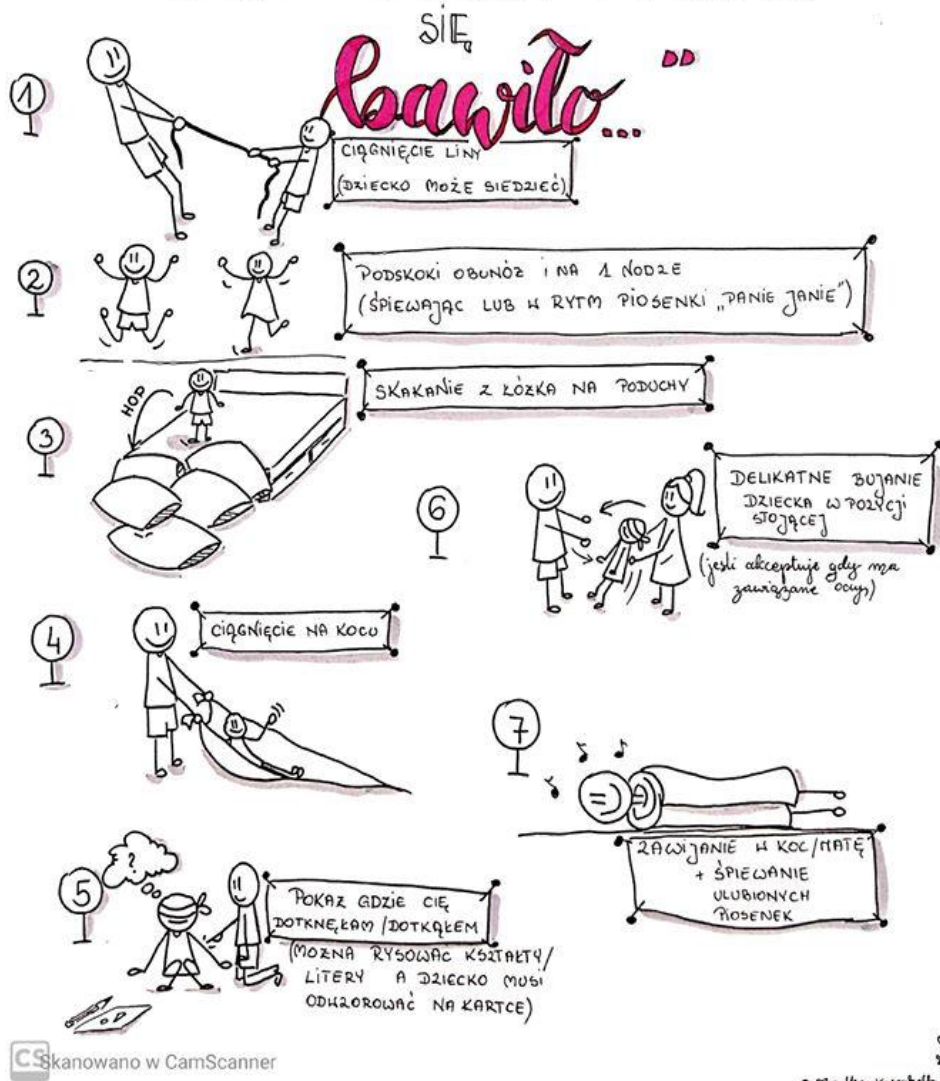 SIĘ
bawiło..."
1
CIĄGNIĘCIE LINY
(DZIECKO MOŻE SIEDZIEĆ)
2
PODSKOKI OBUNÓŻ I NA 1 NODZE
(ŚPIEWAJĄC LUB W RYTM PIOSENKI „PANIE JANIE")
3
HOP
SKAKANIE Z ŁÓŻKA NA PODUCHY
6
DELIKATNE BUJANIE
DZIECKA W POZYCJI
STOJĄCEJ
(jeśli akceptuje gdy ma
zawiązane oczy)
4
CIĄGNIĘCIE NA KOCU
7
ZAWIJANIE W KOC/MATĘ
+ ŚPIEWANIE
ULUBIONYCH
PIOSENEK
5
?
POKAŻ GDZIE CIĘ
DOTKNĘŁAM/DOTKĄŁEM
(MOŻNA RYSOWAĆ KSZTAŁTY/
LITERY A DZIECKO MUSI
ODWZOROWAĆ NA KARTCE)
CS Skanowano w CamScanner